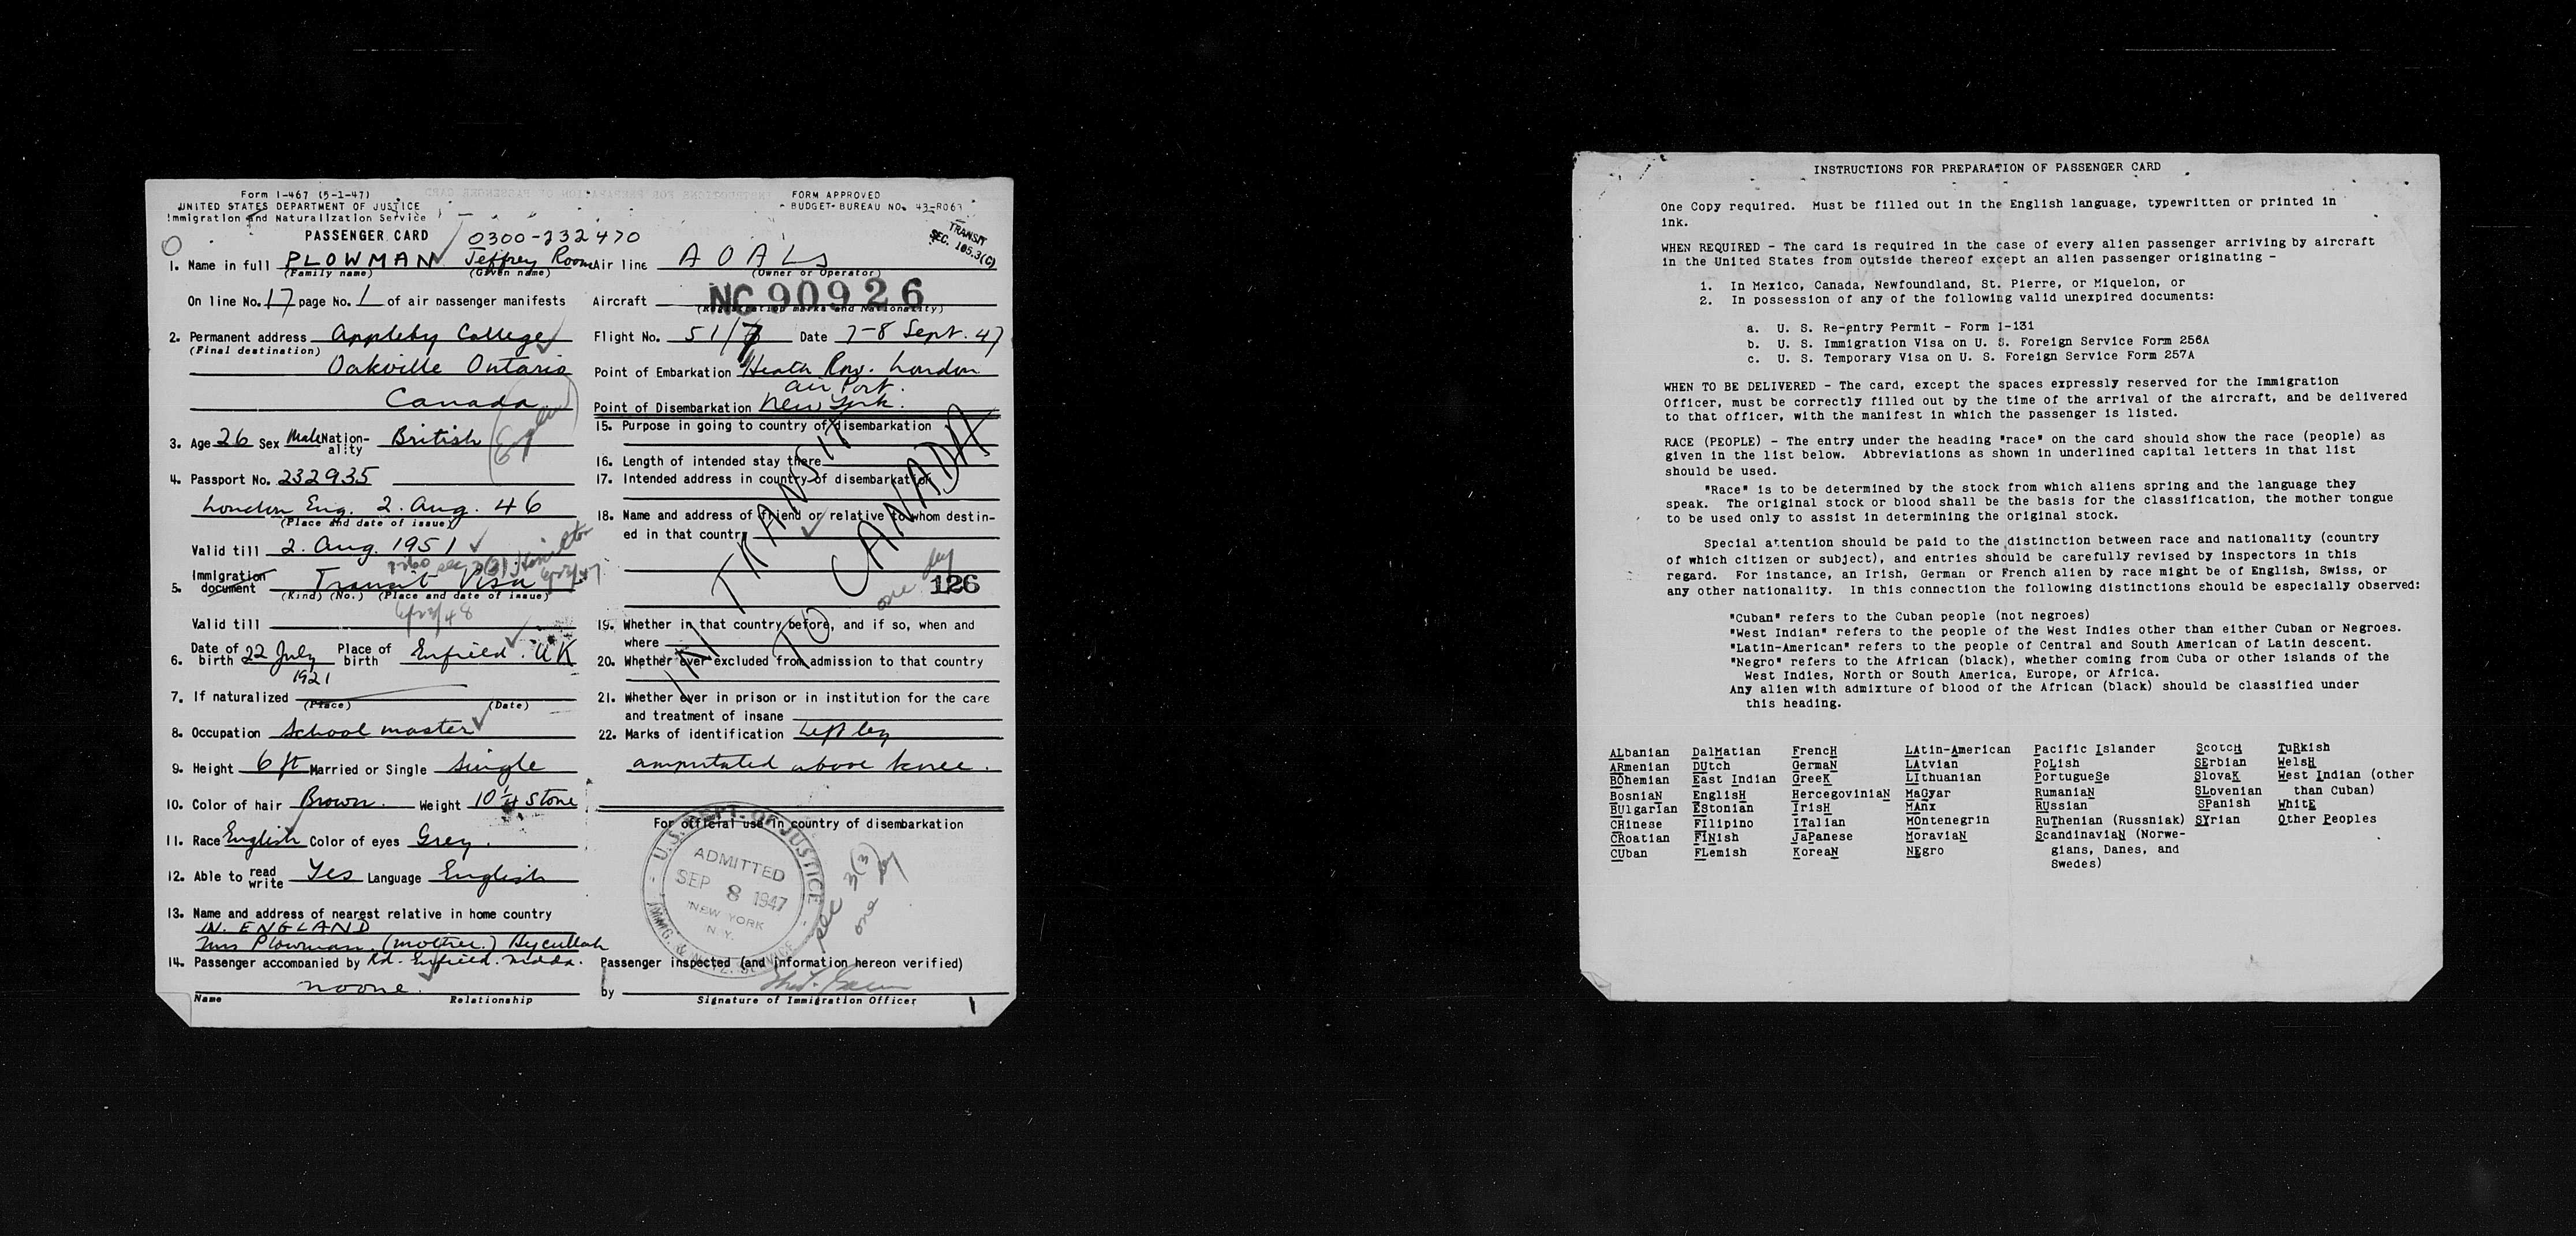 Form I-467 (5-1-47)
UNITED STATES DEPARTMENT OF JUSTICE
Immigration and Naturalization Service
PASSENGER CARD
0300-232470
FORM APPROVED
BUDGET BUREAU NO. 43-R063
TRANSIT
SEC. 105.3(C)
1. Name in full PLOWMAN Jeffrey Room
(Family name) (Given name)
On line No. 17 page No. 1 of air passenger manifests
2. Permanent address Appleby College
(Final destination)
Oakville Ontario
Canada
3. Age 26 Sex Male Nationality British
4. Passport No. 232935
London Eng. 2. Aug. 46
(Place and date of issue)
Valid till 2. Aug. 1951
5. Immigration document Transit Visa
(Kind) (No.) (Place and date of issue)
Valid till
6. Date of birth 22 July 1921 Place of birth Enfield. UK
7. If naturalized
(Place) (Date)
8. Occupation School master
9. Height 6 ft Married or Single Single
10. Color of hair Brown. Weight 10 1/4 Stone
11. Race English Color of eyes Grey.
12. Able to read write Yes Language English
13. Name and address of nearest relative in home country
IN. ENGLAND
Mrs Plowman. (mother.) Bycullah
14. Passenger accompanied by Rd. Enfield. Middx.
noone.
Name Relationship
Air line A O A Ls
(Owner or Operator)
Aircraft NC90926
(Registration marks and Nationality)
Flight No. 51/7 Date 7-8 Sept. 47
Point of Embarkation Heath Row. London
air Port.
Point of Disembarkation New York.
15. Purpose in going to country of disembarkation
16. Length of intended stay there
17. Intended address in country of disembarkation
IN TRANSIT
TO CANADA
18. Name and address of friend or relative to whom destin-
ed in that country
one day
126
19. Whether in that country before, and if so, when and
where
20. Whether ever excluded from admission to that country
21. Whether ever in prison or in institution for the care
and treatment of insane
22. Marks of identification Left leg
amputated above knee.
For official use in country of disembarkation
U.S. DEPT. OF JUSTICE
ADMITTED
SEP 8 1947
NEW YORK
N.Y.
IMMIG. & NATZ. SERVICE
sec 3(3)
one day
Passenger inspected (and information hereon verified)
by
Signature of Immigration Officer
INSTRUCTIONS FOR PREPARATION OF PASSENGER CARD
One Copy required. Must be filled out in the English language, typewritten or printed in
ink.
WHEN REQUIRED - The card is required in the case of every alien passenger arriving by aircraft
in the United States from outside thereof except an alien passenger originating -
1. In Mexico, Canada, Newfoundland, St. Pierre, or Miquelon, or
2. In possession of any of the following valid unexpired documents:
a. U. S. Re-entry Permit - Form I-131
b. U. S. Immigration Visa on U. S. Foreign Service Form 256A
c. U. S. Temporary Visa on U. S. Foreign Service Form 257A
WHEN TO BE DELIVERED - The card, except the spaces expressly reserved for the Immigration
Officer, must be correctly filled out by the time of the arrival of the aircraft, and be delivered
to that officer, with the manifest in which the passenger is listed.
RACE (PEOPLE) - The entry under the heading "race" on the card should show the race (people) as
given in the list below. Abbreviations as shown in underlined capital letters in that list
should be used.
"Race" is to be determined by the stock from which aliens spring and the language they
speak. The original stock or blood shall be the basis for the classification, the mother tongue
to be used only to assist in determining the original stock.
Special attention should be paid to the distinction between race and nationality (country
of which citizen or subject), and entries should be carefully revised by inspectors in this
regard. For instance, an Irish, German or French alien by race might be of English, Swiss, or
any other nationality. In this connection the following distinctions should be especially observed:
"Cuban" refers to the Cuban people (not negroes)
"West Indian" refers to the people of the West Indies other than either Cuban or Negroes.
"Latin-American" refers to the people of Central and South American of Latin descent.
"Negro" refers to the African (black), whether coming from Cuba or other islands of the
West Indies, North or South America, Europe, or Africa.
Any alien with admixture of blood of the African (black) should be classified under
this heading.
ALbanian DalMatian FrencH LAtin-American Pacific Islander ScotcH TuRkish
ARmenian DUtch GermaN LAtvian PoLish SErbian WelsH
BOhemian East Indian GreeK LIthuanian PortugueSe SlovaK West Indian (other
BosniaN EnglisH HercegoviniaN MaGyar RumaniaN SLovenian than Cuban)
BUlgarian EStonian IrisH MAnx RUssian SPanish WhitE
CHinese FIlipino ITalian MOntenegrin RuThenian (Russniak) SYrian Other Peoples
CRoatian FiNish JaPanese MoraviaN ScandinaviaN (Norwe-
CUban FLemish KoreaN NEgro gians, Danes, and
Swedes)